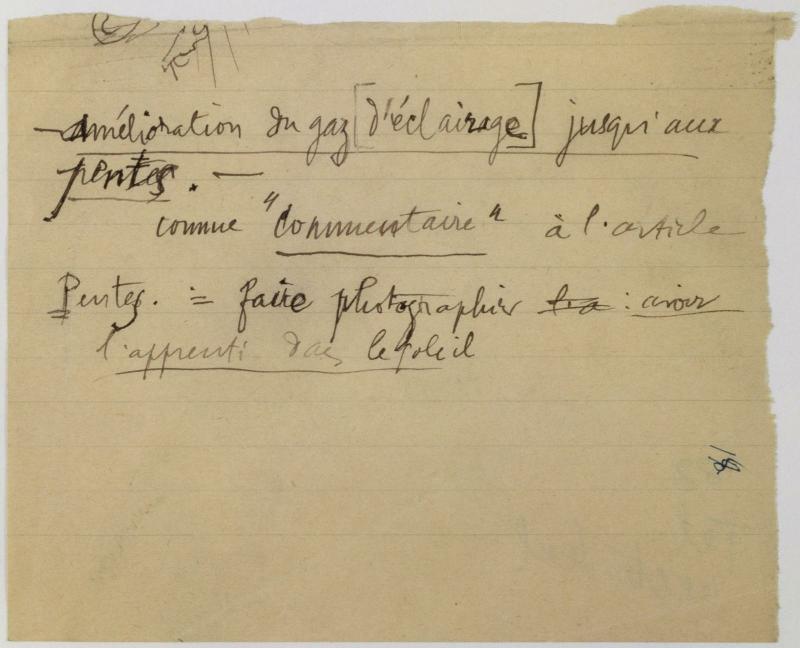 — amélioration du gaz [d'éclairage] jusqu'aux
pentes. —
comme "Commentaire" à l'article
Pentes. = faire photographier : avoir
l'apprenti dans le soleil